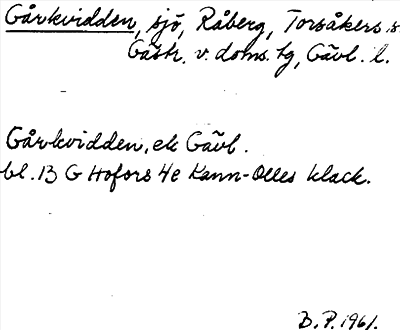 Gårkvidden, sjö, Råberg, Torsåkers s.
Gästr. v. doms. tg, Gävl. l.
Gårkvidden, ek Gävl.
bl. 13 G Hofors 4e Kann-Olles klack.
B.P. 1961.